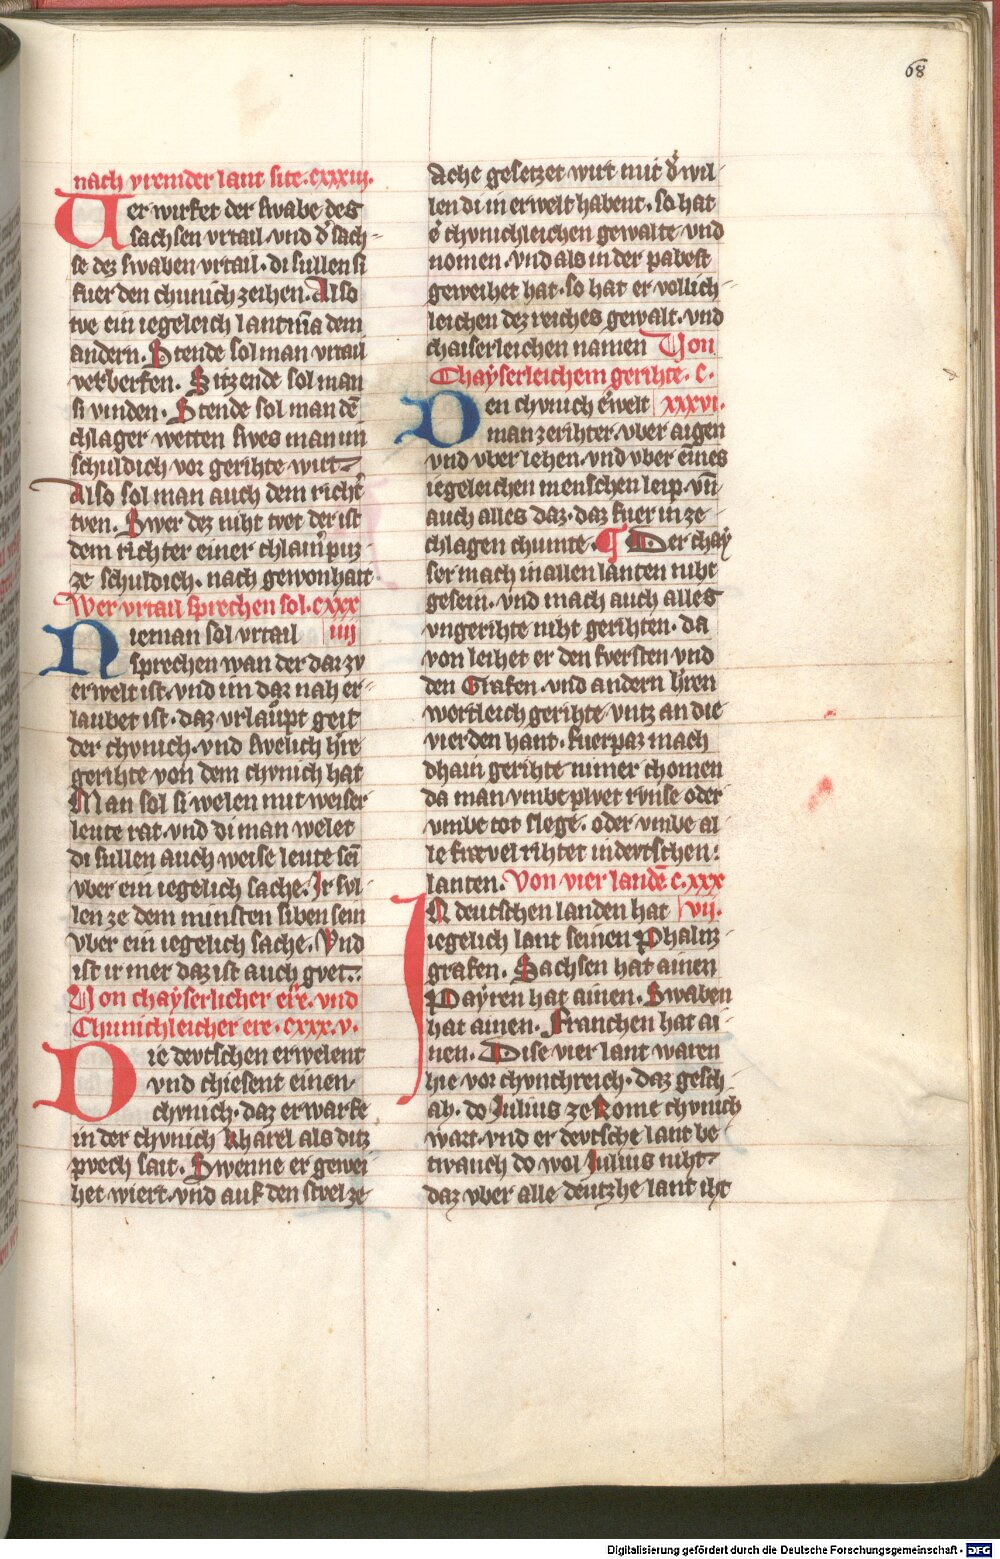 68
nach vremder lant site. cxxxiii.
Uer wirfet der swabe des
sachsen vrtail. vnd d̾ sach-
se dez swaben vrtail. di sullen si
fuer den chunich zeihen. Also
tve ein iegeleich lantm̄a dem
andern. Stende sol man vrtail
verberfen. Sitzende sol man
si vinden. Stende sol man dē
chlager wetten swes man im
schuldich vor gerihte wirt.
Also sol man auch dem richt̾
tven. Swer dez niht tvet der ist
dem richter einer puz-
ze schuldich. nach gewonhait.
Wer vrtail sprechen sol. cxxx
Nieman sol vrtail iiij
sprechen wan der dar zv
erwelt ist. vnd im daz nah er-
laubet ist. daz vrlaupt geit
der chvnich. vnd swelich h̾re
gerihte von dem chvnich hat
Man sol si welen mit weiser
leute rat. vnd di man welet
di sullen auch weise leute sei
vber ein iegelich sache. Ir svl-
len ze dem minsten siben sein
vber ein iegelich sache. Vnd
ist ir mer daz ist auch gvet.
Von chayserlicher ere. vnd
Chunichleicher ere. cxxx.v.
Die devtschen erwelent
vnd chiesent einen
chvnich. daz erwarfe
in der chvnich kharel als ditz
pvech sait. Swenne er gewei
het wiert. vnd auf den stvel ze
Ache gesetzet wirt mit d̾ wil-
len di in erwelt habent. so hat
er chvnichleichen gewalte vnd
nomen. vnd als in der pabest
geweihet hat. so hat er vollich-
leichen dez reiches gewalt. vnd
chaiserleichen namen Von
Chayserleichem gerihte. c.
Den chvnich erwelt xxxvi.
man ze rihter. vber aigen
vnd vber lehen. vnd vber eines
iegeleichen menschen leip. vn̄
auch alles daz. daz fuer in ze
chlagen chumte. ¶ Der chay
ser mach in allen lanten niht
gesein. vnd mach auch alles
vngerihte niht gerihten. da
von leihet er den fversten vnd
den Grafen. vnd andern h̾ren
wertleich gerihte vntz an die
vierden hant. fuerpaz mach
dhain gerihte nimer chomen
da man vmbe plvet rvnse oder
vmbe tot slege. oder vmbe al
le frævel rihtet in devtschen.
lanten. Von vier landē c.xxx
In deutschen landen hat vij.
iegelich lant seinen Phalnz-
grafen. Sachsen hat ainen
Payren hat ainen. Swaben
hat ainen. Franchen hat ai-
nen. Dise vier lant waren
hie vor chvnchreich. daz gesch-
ah. do Julius ze Rome chvnich
wart. vnd er devtsche lant be
twauch do wol Julius niht
daz vber alle deutzhe lant iht
Digitalisierung gefördert durch die Deutsche Forschungsgemeinschaft - DFG